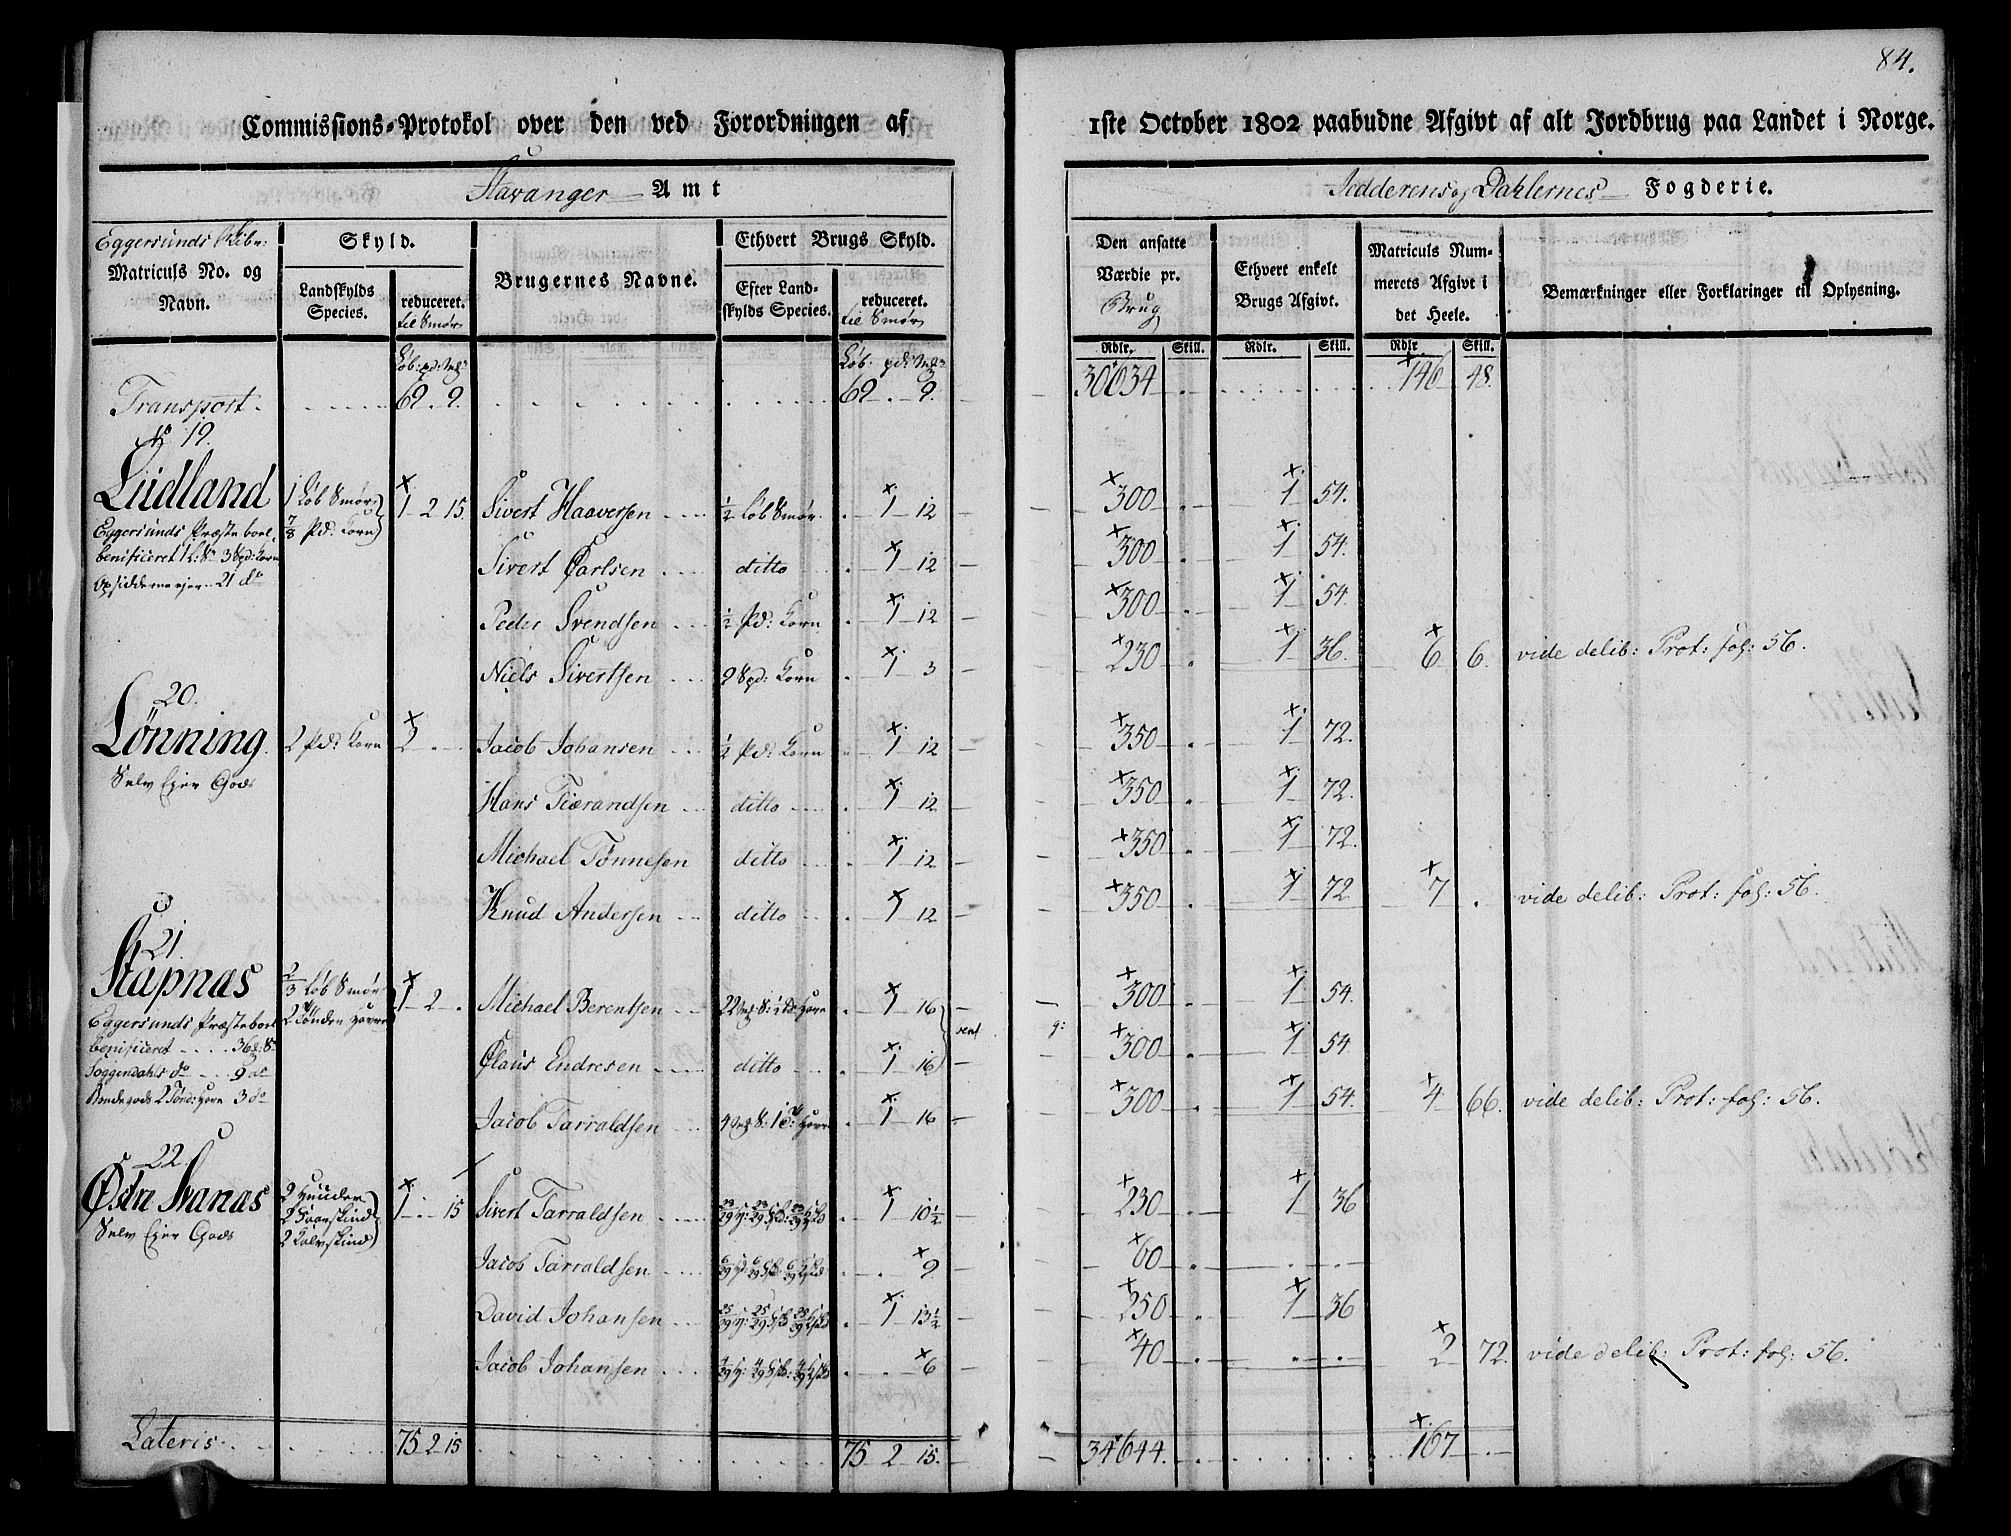 84.
Commissions-Protokol over den ved Forordningen af 1ste October 1802 paabudne Afgivt af alt Jordbrug paa Landet i Norge.
Stavanger Amt
Jedderens og Dahlernes Fogderie.
Eggersunds
Matriculs No. og Navn.
Skyld.
Landskylds Species.
reduceret. til Smør
Brugernes Navne.
Ethvert Brugs Skyld.
Efter Landskylds Species.
reduceret. til Smør
Den ansatte Værdie pr. Brug
Ethvert enkelt Brugs Afgivt.
Matriculs Nummerets Afgivt i det Heele.
Bemærkninger eller Forklaringer til Oplysning.
Rdlr. Skill. Rdlr. Skill. Rdlr. Skill.
Transport 69 . 9. 69 . 9. 30034 146 48.
No 19.
Lüdland 1 Løb Smør 7/8 Pd: Korn 1 2 15. Sivert Haaversen 1/2 Løb Smør 1 12 300 1 54.
Eggersunds Præsteboel
benificeret
Opsidderne ejer 21 do
Sivert Carlsen ditto 1 12 300 1 54.
Peder Svendsen 1/2 Pd: Korn 1 12 300 1 54.
Niels Sivertsen 9 Spd: Korn 1 3 230 1 36. 6 6. vide delib: Prot: fol: 56.
20.
Lønning. 2 Pd: Korn 2 Jacob Johansen 1/2 Pd: Korn 1 12 350 1 72.
Selv Ejer Gods
Hans Tiørandsen ditto 1 12 350 1 72.
Michael Tønnesen ditto 1 12 350 1 72.
Knud Andersen ditto 1 12 350 1 72 7 . vide delib: Prot: fol: 56.
21.
Stapnæs 2/3 Løb Smør 2 Tønder Havre 1 2 . Michael Berentsen 1 16 300 1 54.
Eggersunds Præsteboel
benificeret
Soggendahls do 9 do
Bondegods 3 do
Olaus Endresen ditto 1 16 300 1 54
Jacob Tarraldsen 1 16 300 1 54. 4 66. vide delib: Prot: fol: 56.
22.
Østre Svanæs 2 Huuder 2 Faarskind 2 Kalvskind 1 . 15 Sivert Tarraldsen 1 10 1/2 230 1 36
Selv Ejer Gods
Jacob Tarraldsen 9. 60
David Johansen 1 13 1/2 250 1 36
Jacob Johansen 6 40 2 72. vide delib: Prot: fol: 56.
Lateris 75 2 15 75 2 15. 34644 167